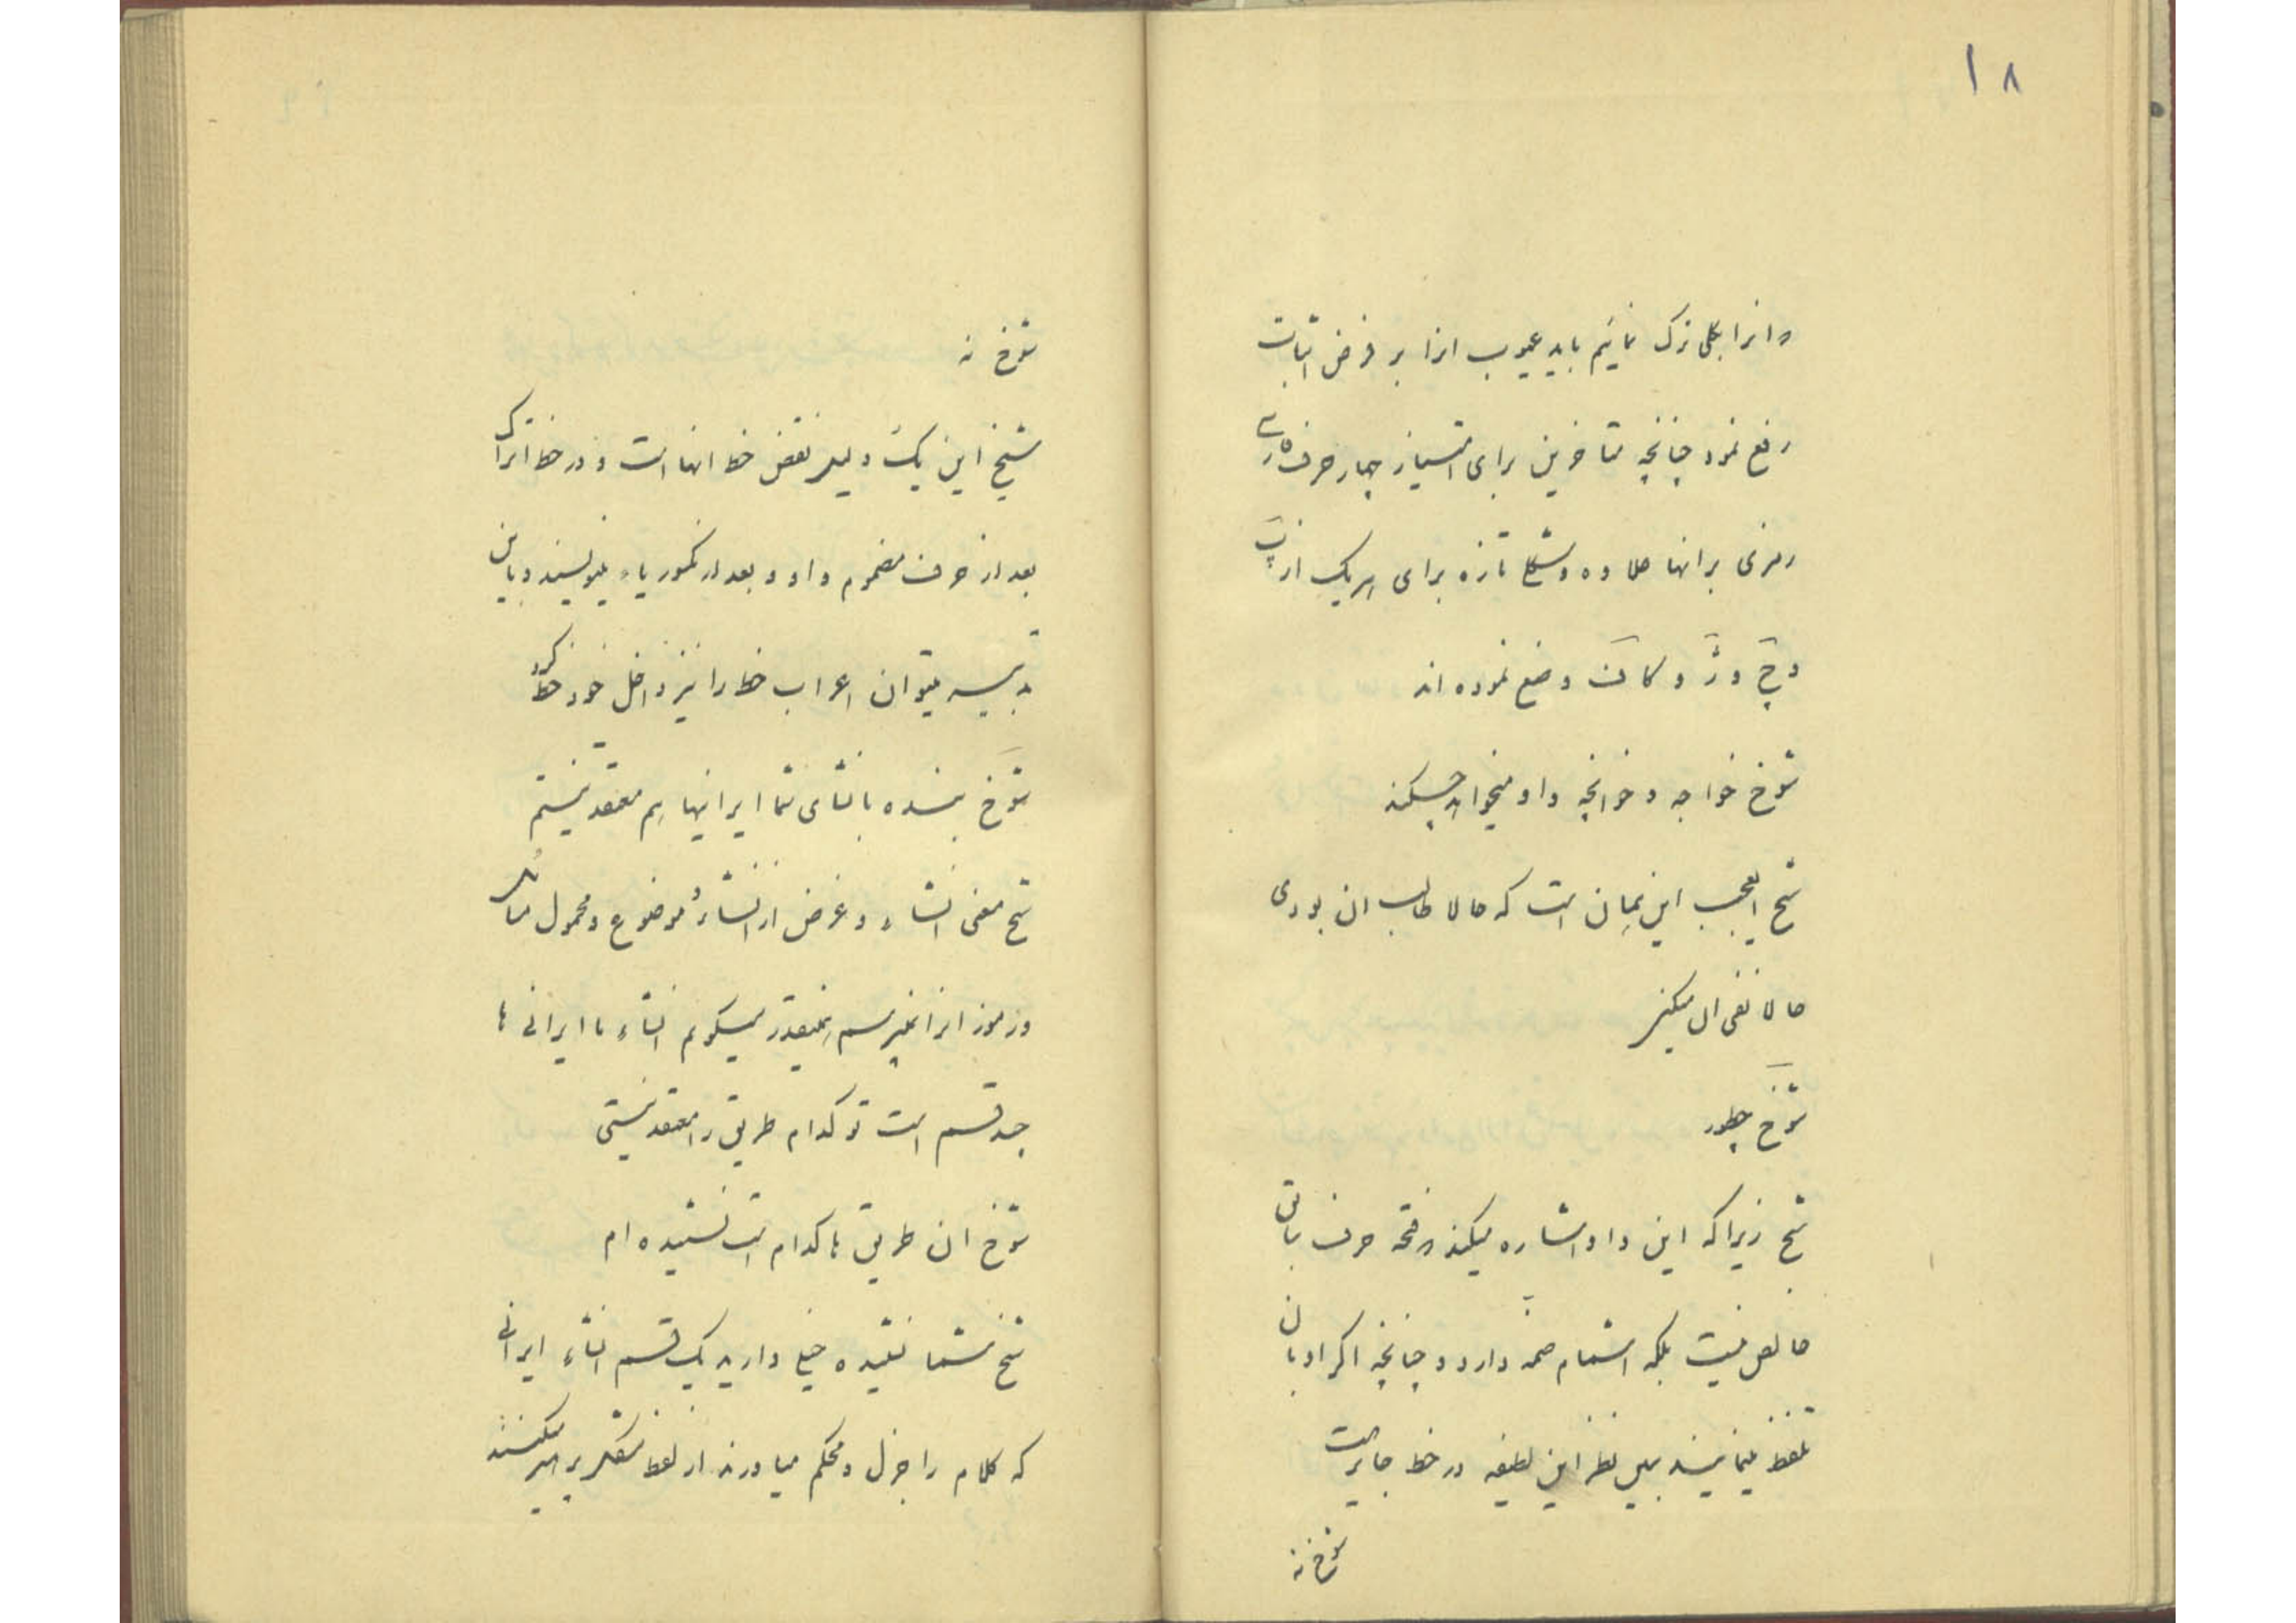 ۱۸
و انرا بکلی ترک نمائیم باید عیوب انرا بر فرض اثبات
رفع نمود چنانچه متاخرین برای امتیاز چهار حرف فارسی
رمزی برانها علاوه و شکلی تازه برای هریک از پ
و چ و ژ و کاف وضع نموده اند
شوخ خواجه و خوانچه واو میخواهد چکند
شیخ العجب این همان است که حالا طالب ان بودی
حالا نفی ان میکنی
شوخ چطور
شیخ زیرا که این واو اشاره میکند فتحه حرف باقی
خالص نیست بلکه اشمام ضمه دارد و چنانچه اکراد بان
تلفظ مینمایند بهمین نظر این لطیفه در خط جاریست
شوخ نه
شوخ نه
شیخ این یک دلیل نقض خط انها است و در خط اتراک
بعد از حرف مضموم واو و بعد از مکسور یاء مینویسند و باین
میتوان اعراب خط را نیز داخل خود خط کرد
شوخ بنده بانشای شما ایرانیها هم معتقد نیستم
شیخ معنی انشاء و غرض از انشاء و موضوع و محمول
و رموز انرا نمیپرسم همینقدر میگویم انشاء ما ایرانی ها
چند قسم است تو کدام طریق را معتقد نیستی
شوخ ان طریق ها کدام است نشنیده ام
شیخ شما نشنیده خیلی دارید یک قسم انشاء ایرانی
که کلام را جزل و محکم میاورند از لفظ میکنند